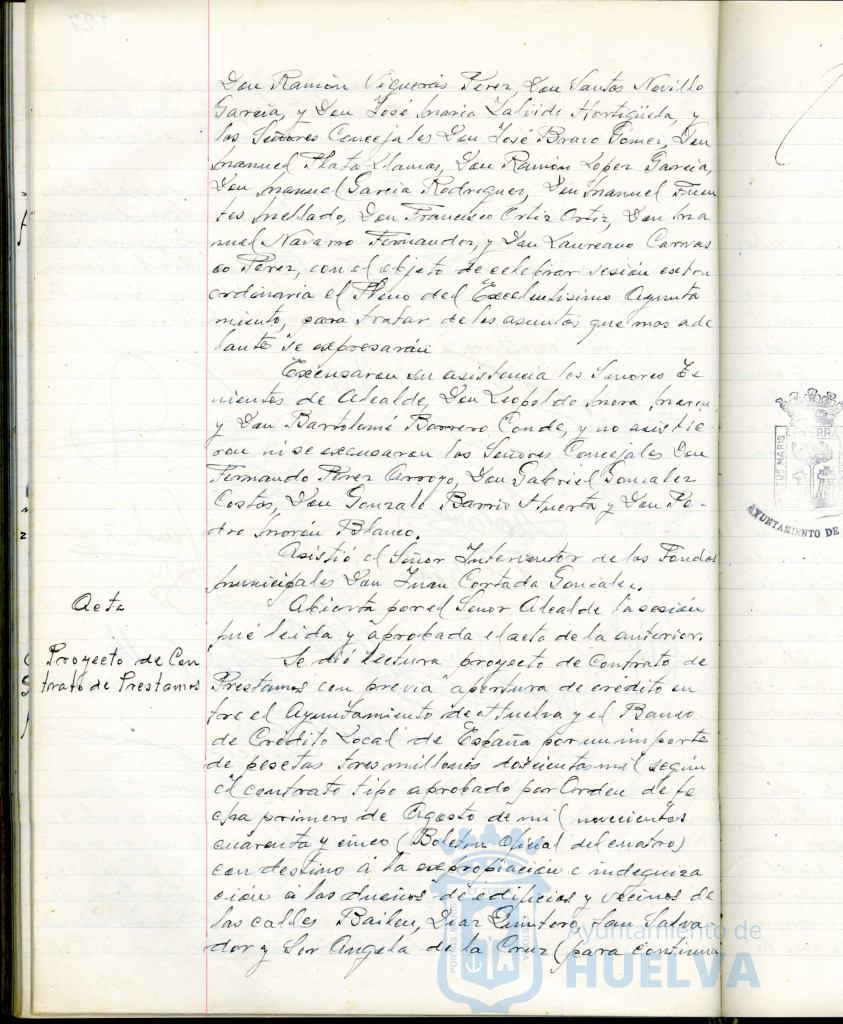 Don Ramón Viguerás Perez, Don Santos Novillo
García, y Don José Maria Zalvide Hortigüela, y
los Señores Concejales Don José Bravo Gomez, Don
Manuel Plata Llamas, Don Ramón Lopez García,
Don Manuel García Rodriguez, Don Manuel Fuen
tes Mellado, Don Francisco Ortiz Ortiz, Don Ma
nuel Navarro Fernandez, y Don Laureano Carvas
co Perez, con el objeto de celebrar sesión extra
ordinaria el Pleno del Excelentisimo Ayunta
miento, para tratar de los asuntos que mas ade
lante se expresarán
Excusaron su asistencia los Señores Te-
nientes de Alcalde, Don Leopoldo Mora
y Don Bartolomé Borrero Conde, y no asistie-
ron ni se excusaron los Señores Concejales Don
Fernando Perez Arroyo, Don Gabriel Gonzalez
Costas, Don Gonzalo Barrio Huerta y Don Pe-
dro Morón Blanco.
Asistió el Señor Interventor de los Fondos
Municipales Don Juan Cortada Gonzalez.
Acta
Abierta por el Señor Alcalde la sesión
fué leida y aprobada el acta de la anterior.
Proyecto de Con
trato de Prestamos
Se dió lectura proyecto de Contrato de
Prestamos con previa apertura de crédito en
tre el Ayuntamiento de Huelva y el Banco
de Crédito Local de España por un importe
de pesetas tres millones doscientas mil según
el contrato tipo aprobado por Orden de fe
cha primero de Agosto de mil novecientos
cuarenta y cinco (Boletin Oficial del cuatro)
con destino á la expropiación e indegniza
ción á los dueños de edificios y vecinos de
las calles Bailen, Diaz Quintero, San Salva
dor y Sor Angela de la Cruz (para continua
US MARIS
AYUNTAMIENTO DE
Ayuntamiento de
HUELVA